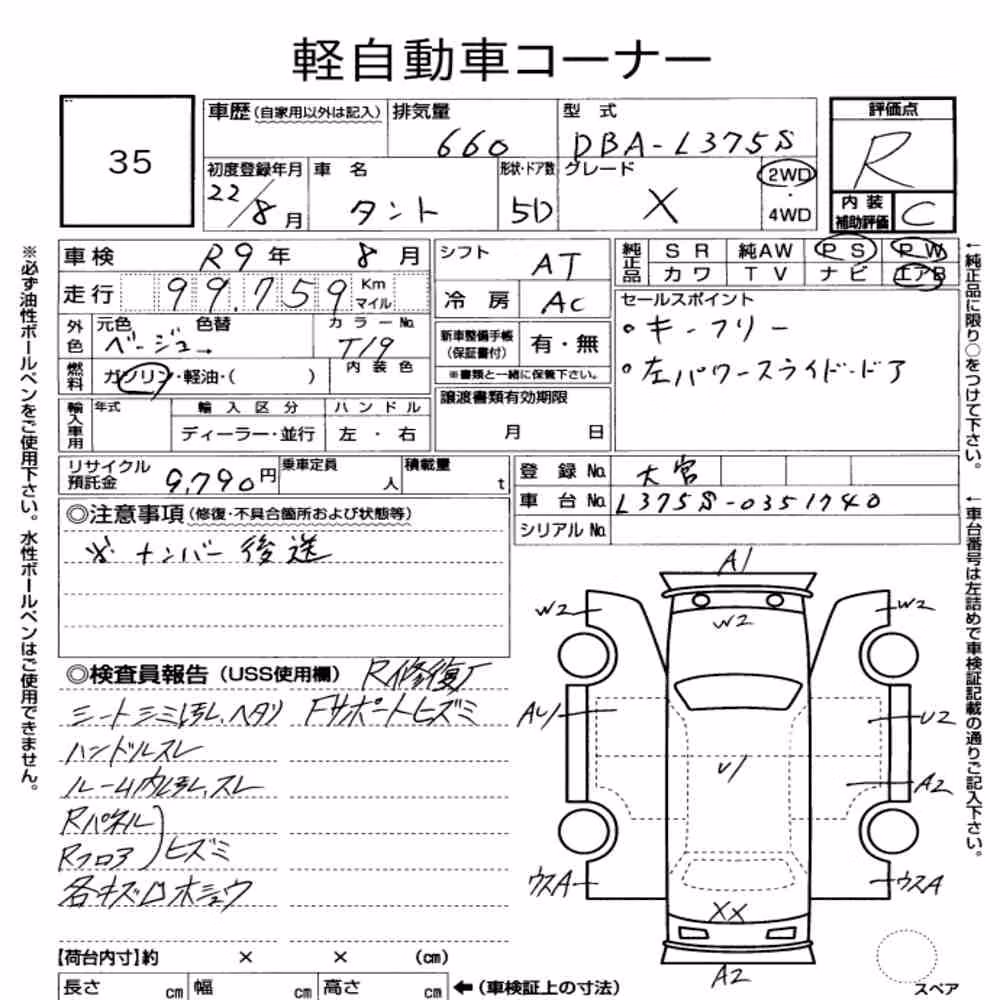 軽自動車コーナー
35
車歴 (自家用以外は記入) 排気量 型式 評価点
660 DBA-L375S R
初度登録年月 車名 形状・ドア数 グレード 2WD・4WD
22/8月 タント 5D X
内装補助評価 C
車検 R9年 8月
走行 99,759 Km マイル
シフト AT
冷房 AC
純正品 SR 純AW PS PW
カワ TV ナビ エアB
セールスポイント
・キーフリー
・左パワースライドドア
外色 元色 色替 カラーNo.
ベージュ T19
燃料 ガソリン・軽油・( ) 内装色
新車整備手帳(保証書付) 有・無
※書類と一緒に保管下さい。
輸入車用 年式 輸入区分 ハンドル
ディーラー・並行 左・右
譲渡書類有効期限
月 日
リサイクル預託金 9,790円 乗車定員 人 積載量 t
登録No. 大宮
車台No. L375S-0351740
シリアルNo.
◎注意事項(修復・不具合箇所および状態等)
※ナンバー後送
◎検査員報告 (USS使用欄) R修復歴
シートシミ汚レ、ヘタリ Fサポートヒズミ
ハンドルスレ
ルーム内汚レ、スレ
Rパネル
Rフロア ヒズミ
各キズ凹ホシュウ
A1
W2 W2 W2
AU1 U2
U1
A2
ウスA ウスA
XX
A2
スペア
【荷台内寸】約 × × (cm)
長さ cm 幅 cm 高さ cm ←(車検証上の寸法)
※必ず油性ボールペンをご使用下さい。水性ボールペンはご使用できません。
←純正品に限り○をつけて下さい。
←車台番号は左詰めで車検証記載の通りご記入下さい。